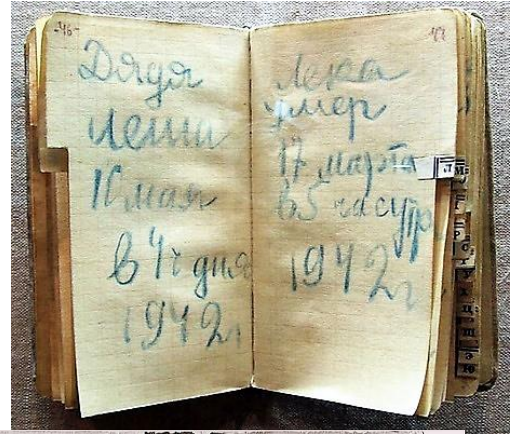 -46-
Дядя
Леша
10 мая
в 4 ч дня
1942 г
47
Лека
умер
17 марта
в 5 час утр
1942 г
Л
М